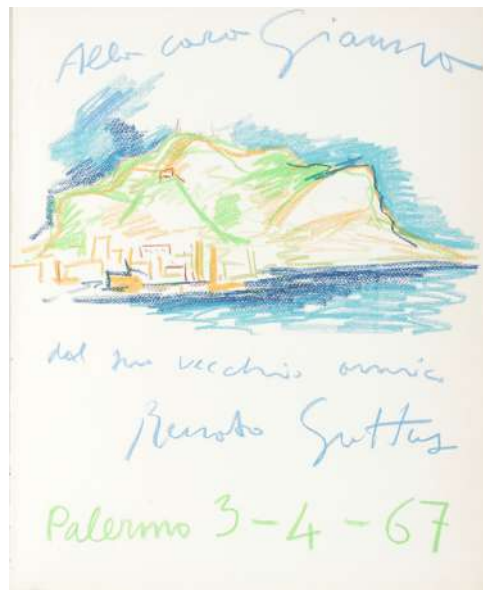 Alla cara Gianna
dal suo vecchio amico
Renato Guttuso
Palermo 3-4-67